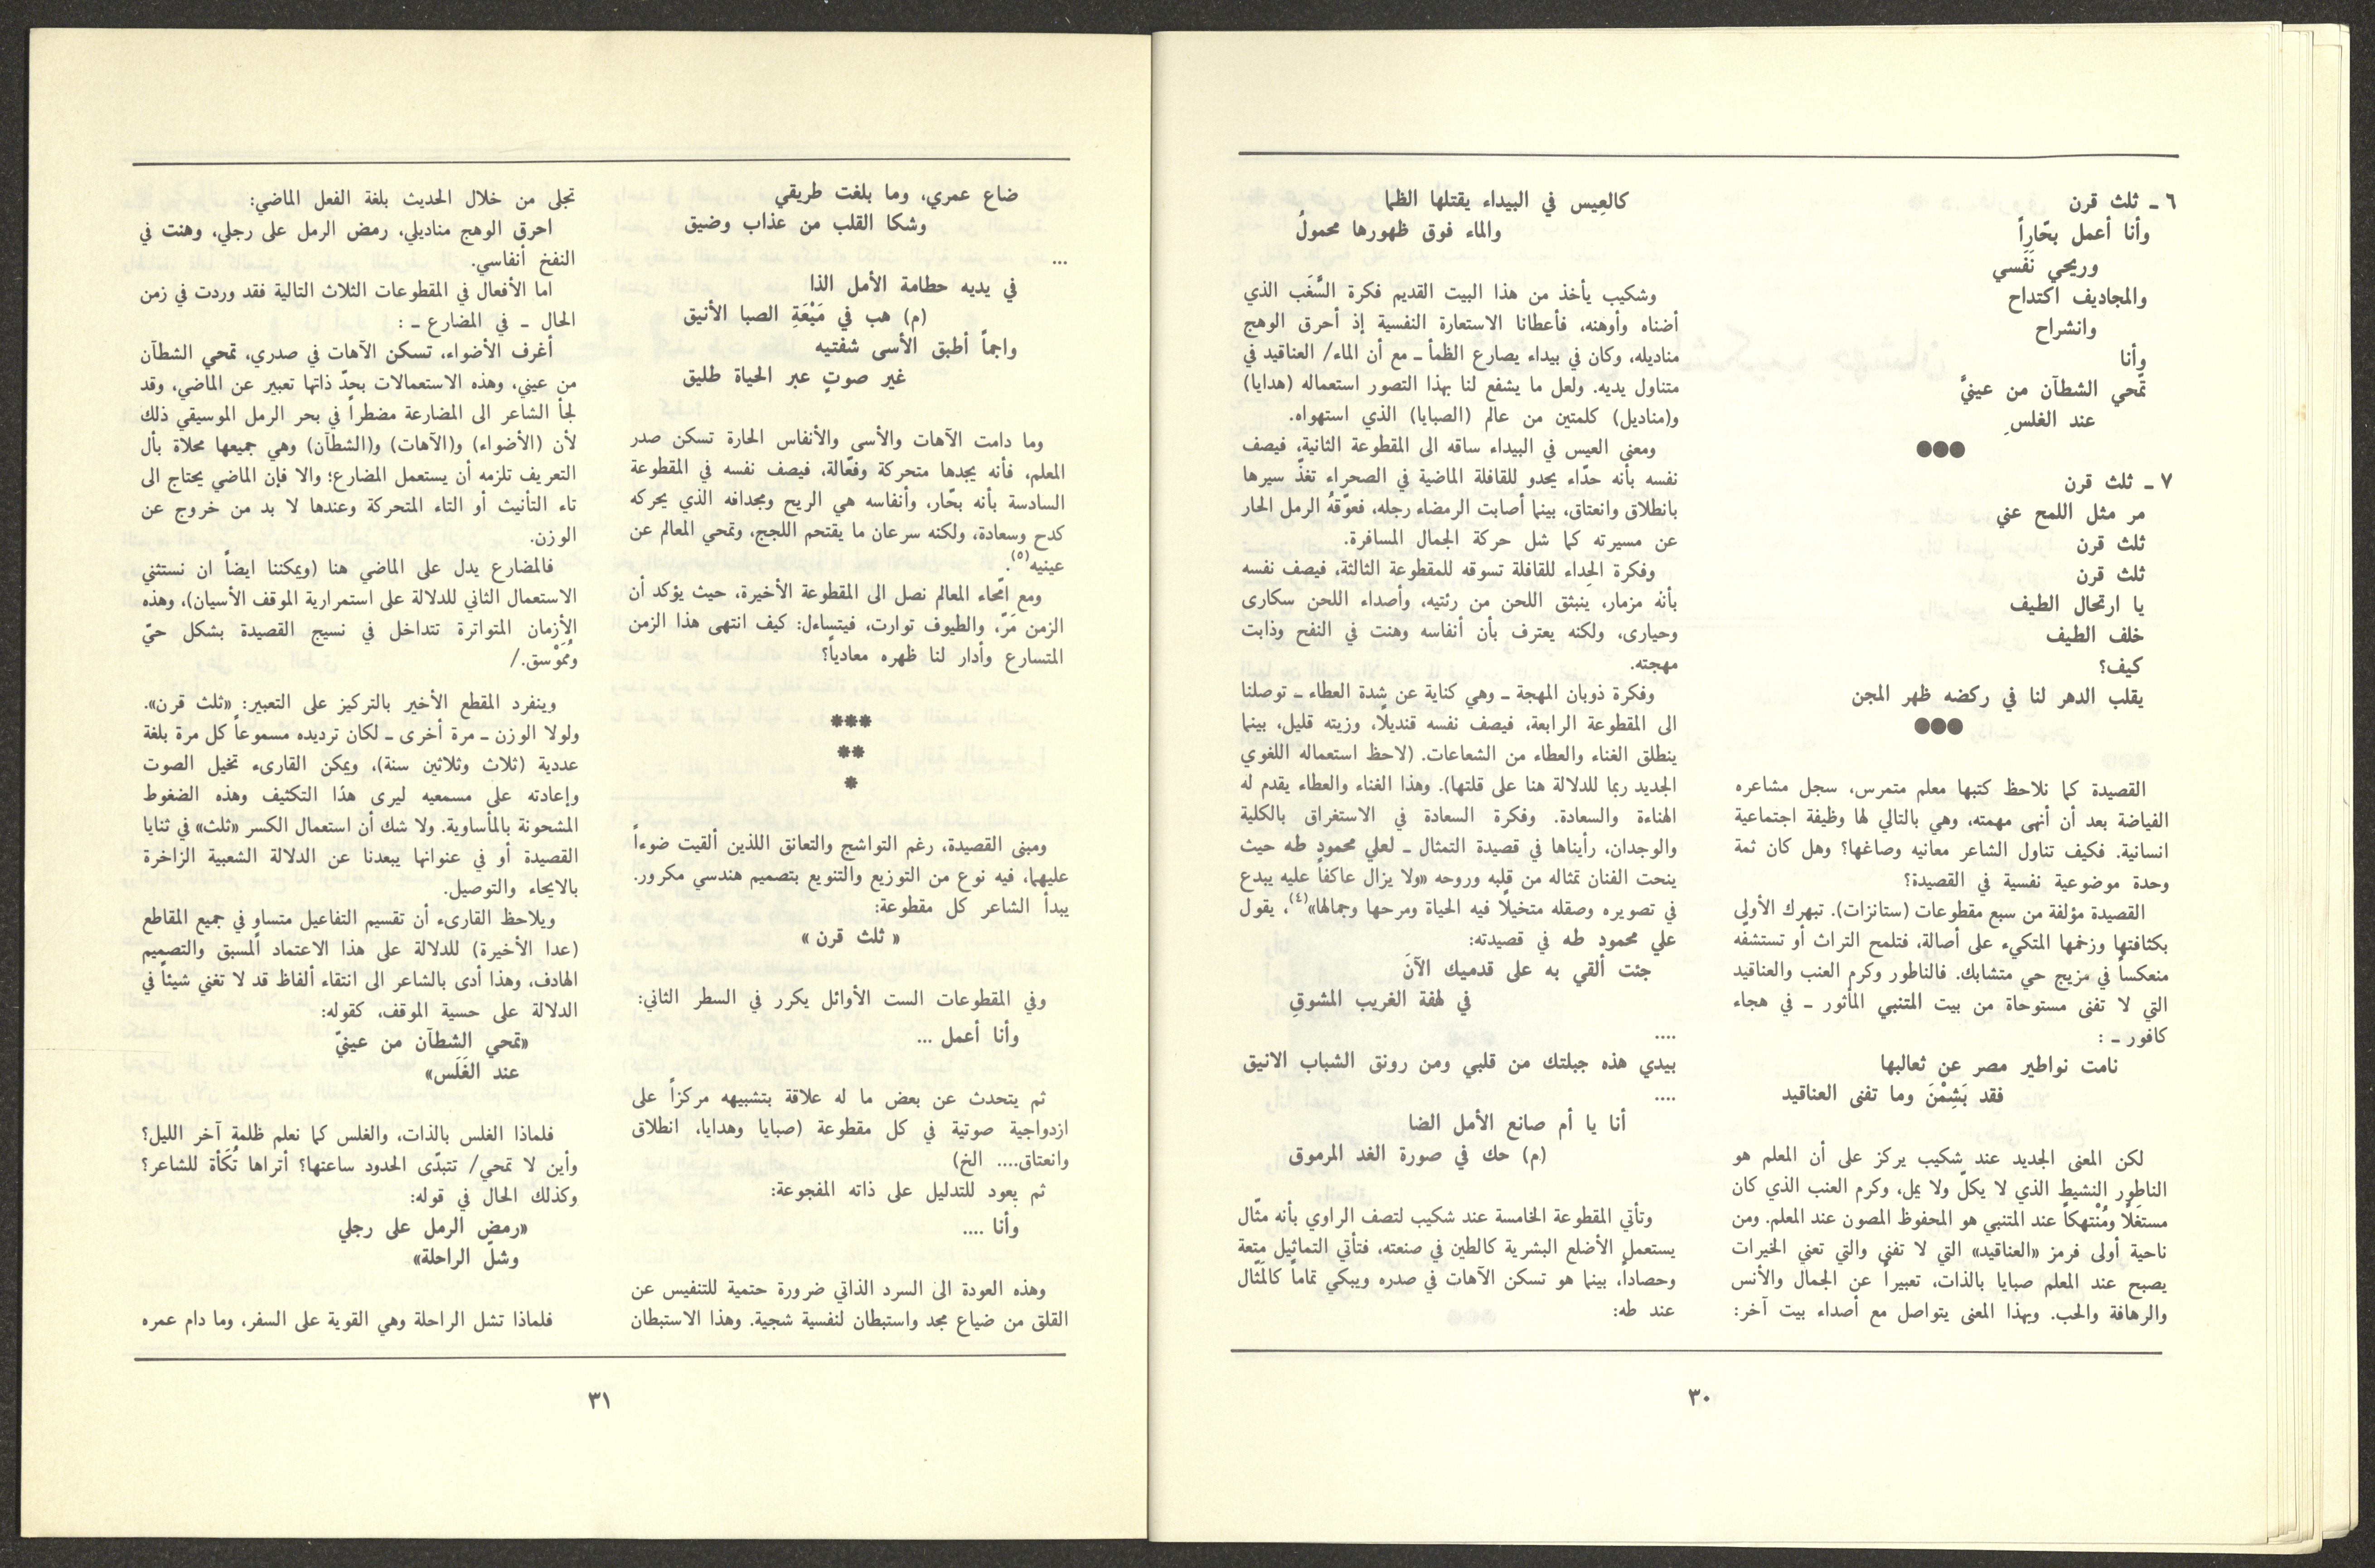 ٦ ـ ثلث قرن
وأنا أعمل بحّاراً
وريحي نَفَسي
والمجاديف اكتداح
وانشراح
وأنا
تمّحي الشطآن من عينيَّ
عند الغلسِ
●●●
٧ ـ ثلث قرن
مر مثل اللمح عني
ثلث قرن
ثلث قرن
يا ارتحال الطيف
خلف الطيف
كيف؟
يقلب الدهر لنا في ركضه ظهر المجن
●●●
القصيدة كما نلاحظ كتبها معلم متمرس، سجل مشاعره
الفياضة بعد أن أنهى مهمته، وهي بالتالي لها وظيفة اجتماعية
انسانية. فكيف تناول الشاعر معانيه وصاغها؟ وهل كان ثمة
وحدة موضوعية نفسية في القصيدة؟
القصيدة مؤلفة من سبع مقطوعات (ستانزات). تبهرك الأولى
بكثافتها وزخمها المتكيء على أصالة، فتلمح التراث أو تستشفه
منعكساً في مزيج حي متشابك. فالناطور وكرم العنب والعناقيد
التي لا تفنى مستوحاة من بيت المتنبي المأثور ـ في هجاء
كافور ـ :
نامت نواطير مصر عن ثعالبها
فقد بَشِمْنَ وما تفنى العناقيد
لكن المعنى الجديد عند شكيب يركز على أن المعلم هو
الناطور النشيط الذي لا يكلّ ولا يمل، وكرم العنب الذي كان
مستغَلًّا ومُنْتهكاً عند المتنبي هو المحفوظ المصون عند المعلم. ومن
ناحية أولى فرمز «العناقيد» التي لا تفنى والتي تعني الخيرات
يصبح عند المعلم صبايا بالذات، تعبيراً عن الجمال والأنس
والرهافة والحب. وبهذا المعنى يتواصل مع أصداء بيت آخر:
كالعِيس في البيداء يقتلها الظما
والماء فوق ظهورها محمولُ
وشكيب يأخذ من هذا البيت القديم فكرة السَّغَب الذي
أضناه وأوهنه، فأعطانا الاستعارة النفسية إذ أحرق الوهج
مناديله، وكان في بيداء يصارع الظمأ ـ مع أن الماء/ العناقيد في
متناول يديه. ولعل ما يشفع لنا بهذا التصور استعماله (هدايا)
و(مناديل) كلمتين من عالم (الصبايا) الذي استهواه.
ومعنى العيس في البيداء ساقه الى المقطوعة الثانية، فيصف
نفسه بأنه حدّاء يحدو للقافلة الماضية في الصحراء تغذّ سيرها
بانطلاق وانعتاق، بينما أصابت الرمضاء رجله، فعوّقهُ الرمل الحار
عن مسيرته كما شل حركة الجمال المسافرة.
وفكرة الحِداء للقافلة تسوقه للمقطوعة الثالثة، فيصف نفسه
بأنه مزمار، ينبثق اللحن من رئتيه، وأصداء اللحن سكارى
وحيارى، ولكنه يعترف بأن أنفاسه وهنت في النفح وذابت
مهجته.
وفكرة ذوبان المهجة ـ وهي كناية عن شدة العطاء ـ توصلنا
الى المقطوعة الرابعة، فيصف نفسه قنديلًا، وزيته قليل، بينما
ينطلق الغناء والعطاء من الشعاعات. (لاحظ استعماله اللغوي
الجديد ربما للدلالة هنا على قلتها). وهذا الغناء والعطاء يقدم له
الهناءة والسعادة. وفكرة السعادة في الاستغراق بالكلية
والوجدان، رأيناها في قصيدة التمثال ـ لعلي محمود طه حيث
ينحت الفنان تمثاله من قلبه وروحه «ولا يزال عاكفاً عليه يبدع
في تصويره وصقله متخيلًا فيه الحياة ومرحها وجمالها»(٤)، يقول
علي محمود طه في قصيدته:
جئت ألقي به على قدميك الآنَ
في لهفة الغريب المشوقِ
....
بيدي هذه جبلتك من قلبي ومن رونق الشباب الانيق
....
أنا يا أم صانع الأمل الضا
(م) حك في صورة الغد المرموق
وتأتي المقطوعة الخامسة عند شكيب لتصف الراوي بأنه مثّال
يستعمل الأضلع البشرية كالطين في صنعته، فتأتي التماثيل متعة
وحصاداً، بينما هو تسكن الآهات في صدره ويبكي تماماً كالمَثّال
عند طه:
٣٠
ضاع عمري، وما بلغت طريقي
وشكا القلب من عذاب وضيق
...
في يديه حطامة الأمل الذا
(م) هب في مَيْعَةِ الصبا الأنيق
واجماً أطبق الأسى شفتيه
غير صوتٍ عبر الحياة طليق
وما دامت الآهات والأسى والأنفاس الحارة تسكن صدر
المعلم، فأنه يجدها متحركة وفعّالة، فيصف نفسه في المقطوعة
السادسة بأنه بحّار، وأنفاسه هي الريح ومجدافه الذي يحركه
كدح وسعادة، ولكنه سرعان ما يقتحم اللجج، وتمحي المعالم عن
عينيه(٥).
ومع امّحاء المعالم نصل الى المقطوعة الأخيرة، حيث يؤكد أن
الزمن مَرّ، والطيوف توارت، فيتساءل: كيف انتهى هذا الزمن
المتسارع وأدار لنا ظهره معادياً؟
***
**
*
ومبنى القصيدة، رغم التواشج والتعانق اللذين ألقيت ضوءاً
عليهما، فيه نوع من التوزيع والتنويع بتصميم هندسي مكرور.
يبدأ الشاعر كل مقطوعة:
« ثلث قرن »
وفي المقطوعات الست الأوائل يكرر في السطر الثاني:
وأنا أعمل ...
ثم يتحدث عن بعض ما له علاقة بتشبيهه مركزاً على
ازدواجية صوتية في كل مقطوعة (صبايا وهدايا، انطلاق
وانعتاق.... الخ)
ثم يعود للتدليل على ذاته المفجوعة:
وأنا ....
وهذه العودة الى السرد الذاتي ضرورة حتمية للتنفيس عن
القلق من ضياع مجد واستبطان لنفسية شجية. وهذا الاستبطان
تجلى من خلال الحديث بلغة الفعل الماضي:
احرق الوهج مناديلي، رمض الرمل على رجلي، وهنت في
النفخ أنفاسي.
اما الأفعال في المقطوعات الثلاث التالية فقد وردت في زمن
الحال ـ في المضارع ـ :
أغرف الأضواء، تسكن الآهات في صدري، تمحي الشطآن
من عيني، وهذه الاستعمالات بحدّ ذاتها تعبير عن الماضي، وقد
لجأ الشاعر الى المضارعة مضطراً في بحر الرمل الموسيقي ذلك
لأن (الأضواء) و(الآهات) و(الشطآن) وهي جميعها محلاة بأل
التعريف تلزمه أن يستعمل المضارع؛ والا فإن الماضي يحتاج الى
تاء التأنيث أو التاء المتحركة وعندها لا بد من خروج عن
الوزن.
فالمضارع يدل على الماضي هنا (ويمكننا ايضاً ان نستثني
الاستعمال الثاني للدلالة على استمرارية الموقف الأسيان)، وهذه
الأزمان المتواترة تتداخل في نسيج القصيدة بشكل حيّ
ومُمَوْسق./
وينفرد المقطع الأخير بالتركيز على التعبير: «ثلث قرن».
ولولا الوزن ـ مرة أخرى ـ لكان ترديده مسموعاً كل مرة بلغة
عددية (ثلاث وثلاثين سنة)، ويمكن القارىء تخيل الصوت
وإعادته على مسمعيه ليرى هذا التكثيف وهذه الضغوط
المشحونة بالمأساوية. ولا شك أن استعمال الكسر «ثلث» في ثنايا
القصيدة أو في عنوانها يبعدنا عن الدلالة الشعبية الزاخرة
بالايحاء والتوصيل.
ويلاحظ القارىء أن تقسيم التفاعيل متساوٍ في جميع المقاطع
(عدا الأخيرة) للدلالة على هذا الاعتماد المسبق والتصميم
الهادف، وهذا أدى بالشاعر الى انتقاء ألفاظ قد لا تغني شيئاً في
الدلالة على حسية الموقف، كقوله:
«تمحي الشطآن من عينيّ
عند الغَلَس»
فلماذا الغلس بالذات، والغلس كما نعلم ظلمة آخر الليل؟
وأين لا تمحي/ تتبدّى الحدود ساعتها؟ أتراها تُكَأة للشاعر؟
وكذلك الحال في قوله:
«رمض الرمل على رجلي
وشلّ الراحلة»
فلماذا تشل الراحلة وهي القوية على السفر، وما دام عمره
٣١